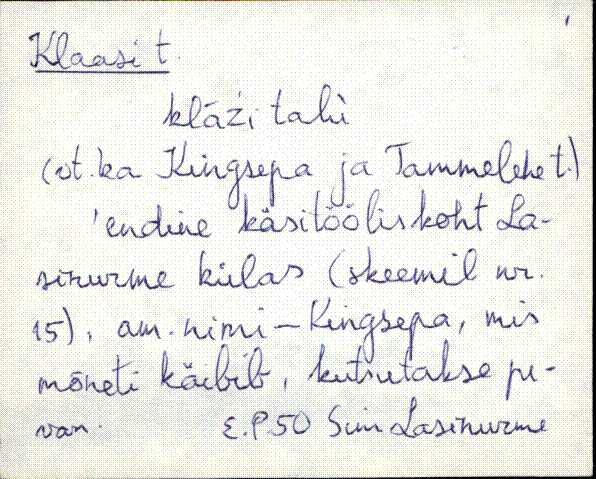 Klaasi t.
klāźi talu
(vt. ka Kingsepa ja Tammelehe t.)
'endine käsitööliskoht La-
sinurme külas (skeemil nr.
15), am. nimi – Kingsepa, mis
mõneti käibib, kutsutakse pe-
van. E.P.50 Sim Lasinurme